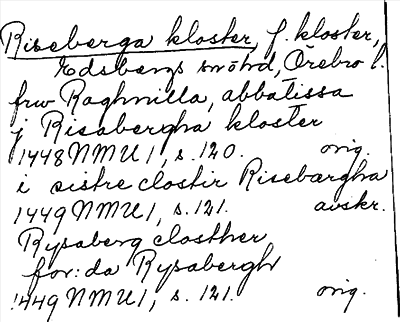 Riseberga kloster, f. kloster,
Edsbergs snöhd, Örebro l.
fru Raghnilla, abbatissa
j Risabergha kloster
1448 NMU 1, s. 120. orig.
i sistre clostir Risebærgha
1449 NMU 1, s. 121. avskr.
Rysaberg closther
for: da Rysabergh
1449 NMU 1, s. 121. orig.